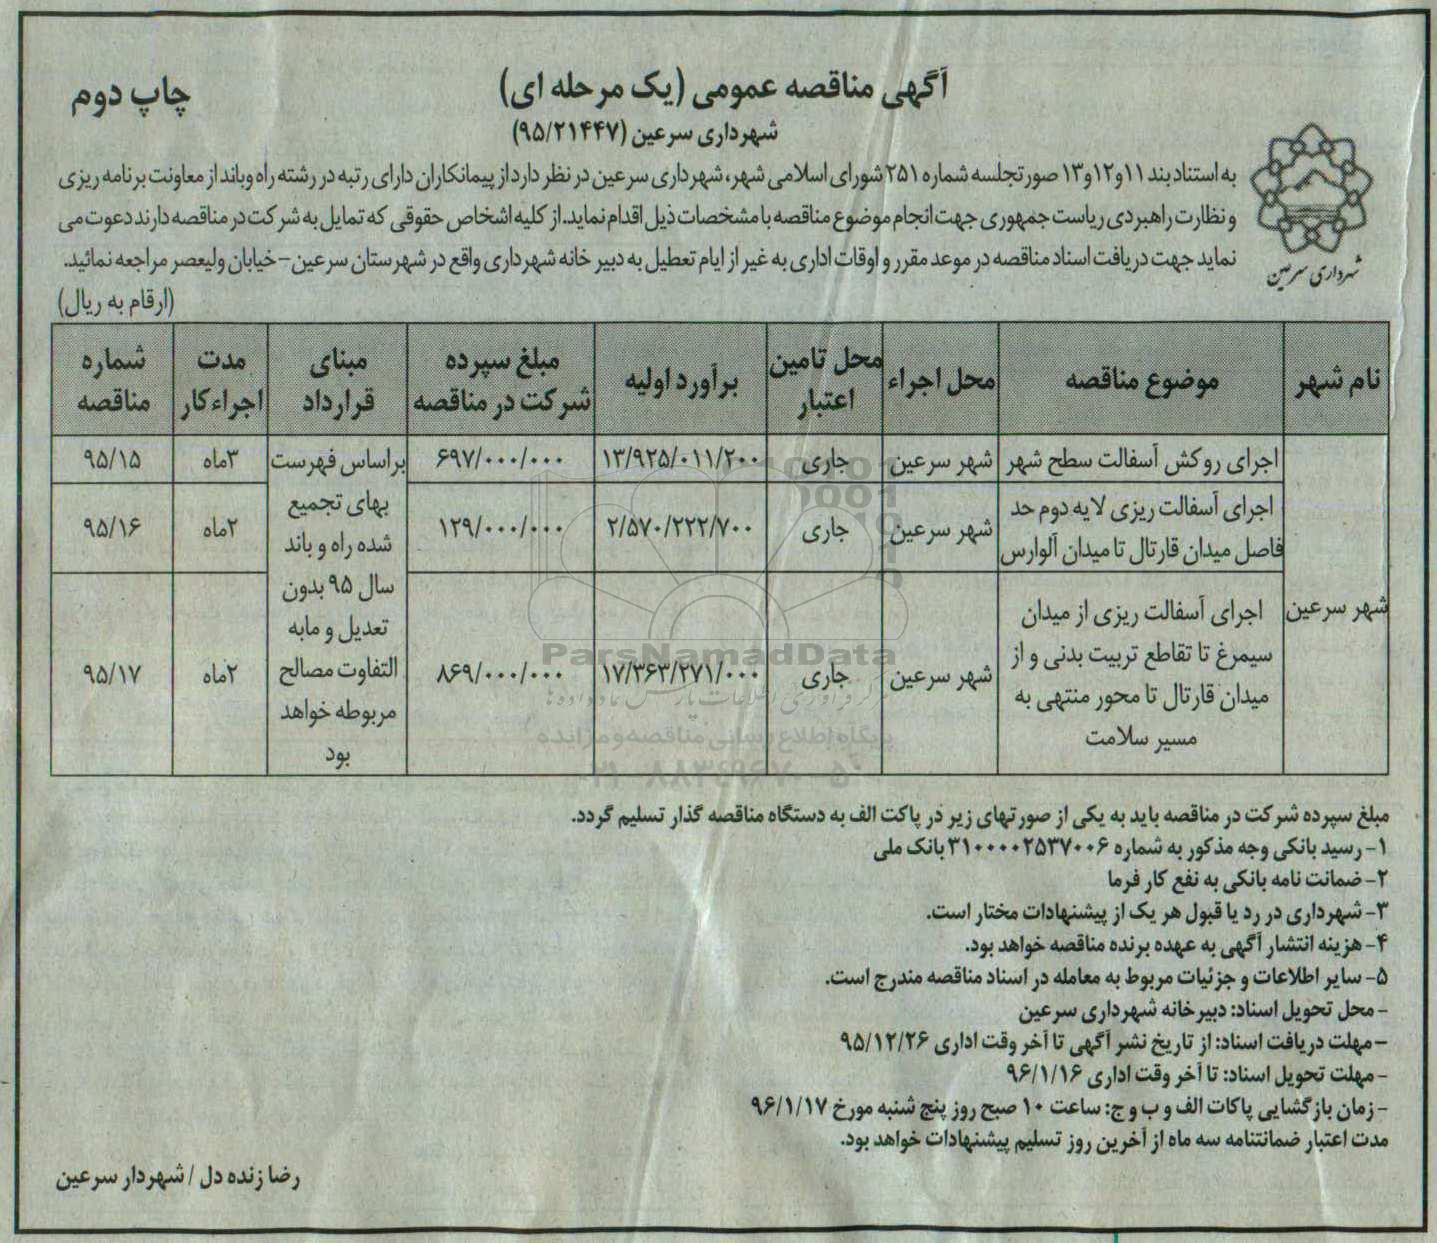 آگهی مناقصه عمومی (یک مرحله ای)
چاپ دوم
شهرداری سرعین (۹۵/۲۱۴۴۷)
به استناد بند ۱۱و۱۲و۱۳ صورتجلسه شماره ۲۵۱ شورای اسلامی شهر، شهرداری سرعین در نظر دارد از پیمانکاران دارای رتبه در رشته راه وباند از معاونت برنامه ریزی
و نظارت راهبردی ریاست جمهوری جهت انجام موضوع مناقصه با مشخصات ذیل اقدام نماید. از کلیه اشخاص حقوقی که تمایل به شرکت در مناقصه دارند دعوت می
نماید جهت دریافت اسناد مناقصه در موعد مقرر و اوقات اداری به غیر از ایام تعطیل به دبیر خانه شهرداری واقع در شهرستان سرعین-خیابان ولیعصر مراجعه نمائید.
شهرداری سرعین
(ارقام به ریال)
نام شهر	موضوع مناقصه	محل اجراء	محل تامین اعتبار	برآورد اولیه	مبلغ سپرده شرکت در مناقصه	مبنای قرارداد	مدت اجراء کار	شماره مناقصه
شهر سرعین
اجرای روکش آسفالت سطح شهر	شهر سرعین	جاری	۱۳/۹۲۵/۰۱۱/۲۰۰	۶۹۷/۰۰۰/۰۰۰	۳ماه	۹۵/۱۵
اجرای آسفالت ریزی لایه دوم حد
فاصل میدان قارتال تا میدان آلوارس	شهر سرعین	جاری	۲/۵۷۰/۲۲۲/۷۰۰	۱۲۹/۰۰۰/۰۰۰	۲ماه	۹۵/۱۶
اجرای آسفالت ریزی از میدان
سیمرغ تا تقاطع تربیت بدنی و از
میدان قارتال تا محور منتهی به
مسیر سلامت	شهر سرعین	جاری	۱۷/۳۶۳/۲۷۱/۰۰۰	۸۶۹/۰۰۰/۰۰۰	۲ماه	۹۵/۱۷
براساس فهرست
بهای تجمیع
شده راه و باند
سال ۹۵ بدون
تعدیل و مابه
التفاوت مصالح
مربوطه خواهد
بود
ParsNamadData
پایگاه اطلاع رسانی مناقصه و مزایده
۰۲۱-۸۸۳۴۹۶۷۰-۵
مبلغ سپرده شرکت در مناقصه باید به یکی از صورتهای زیر در پاکت الف به دستگاه مناقصه گذار تسلیم گردد.
۱- رسید بانکی وجه مذکور به شماره ۳۱۰۰۰۰۲۵۳۷۰۰۶ بانک ملی
۲- ضمانت نامه بانکی به نفع کار فرما
۳- شهرداری در رد یا قبول هر یک از پیشنهادات مختار است.
۴- هزینه انتشار آگهی به عهده برنده مناقصه خواهد بود.
۵- سایر اطلاعات و جزئیات مربوط به معامله در اسناد مناقصه مندرج است.
- محل تحویل اسناد: دبیرخانه شهرداری سرعین
-مهلت دریافت اسناد: از تاریخ نشر آگهی تا آخر وقت اداری ۹۵/۱۲/۲۶
- مهلت تحویل اسناد: تا آخر وقت اداری ۹۶/۱/۱۶
- زمان بازگشایی پاکات الف و ب و ج: ساعت ۱۰ صبح روز پنج شنبه مورخ ۹۶/۱/۱۷
مدت اعتبار ضمانتنامه سه ماه از آخرین روز تسلیم پیشنهادات خواهد بود.
رضا زنده دل / شهردار سرعین